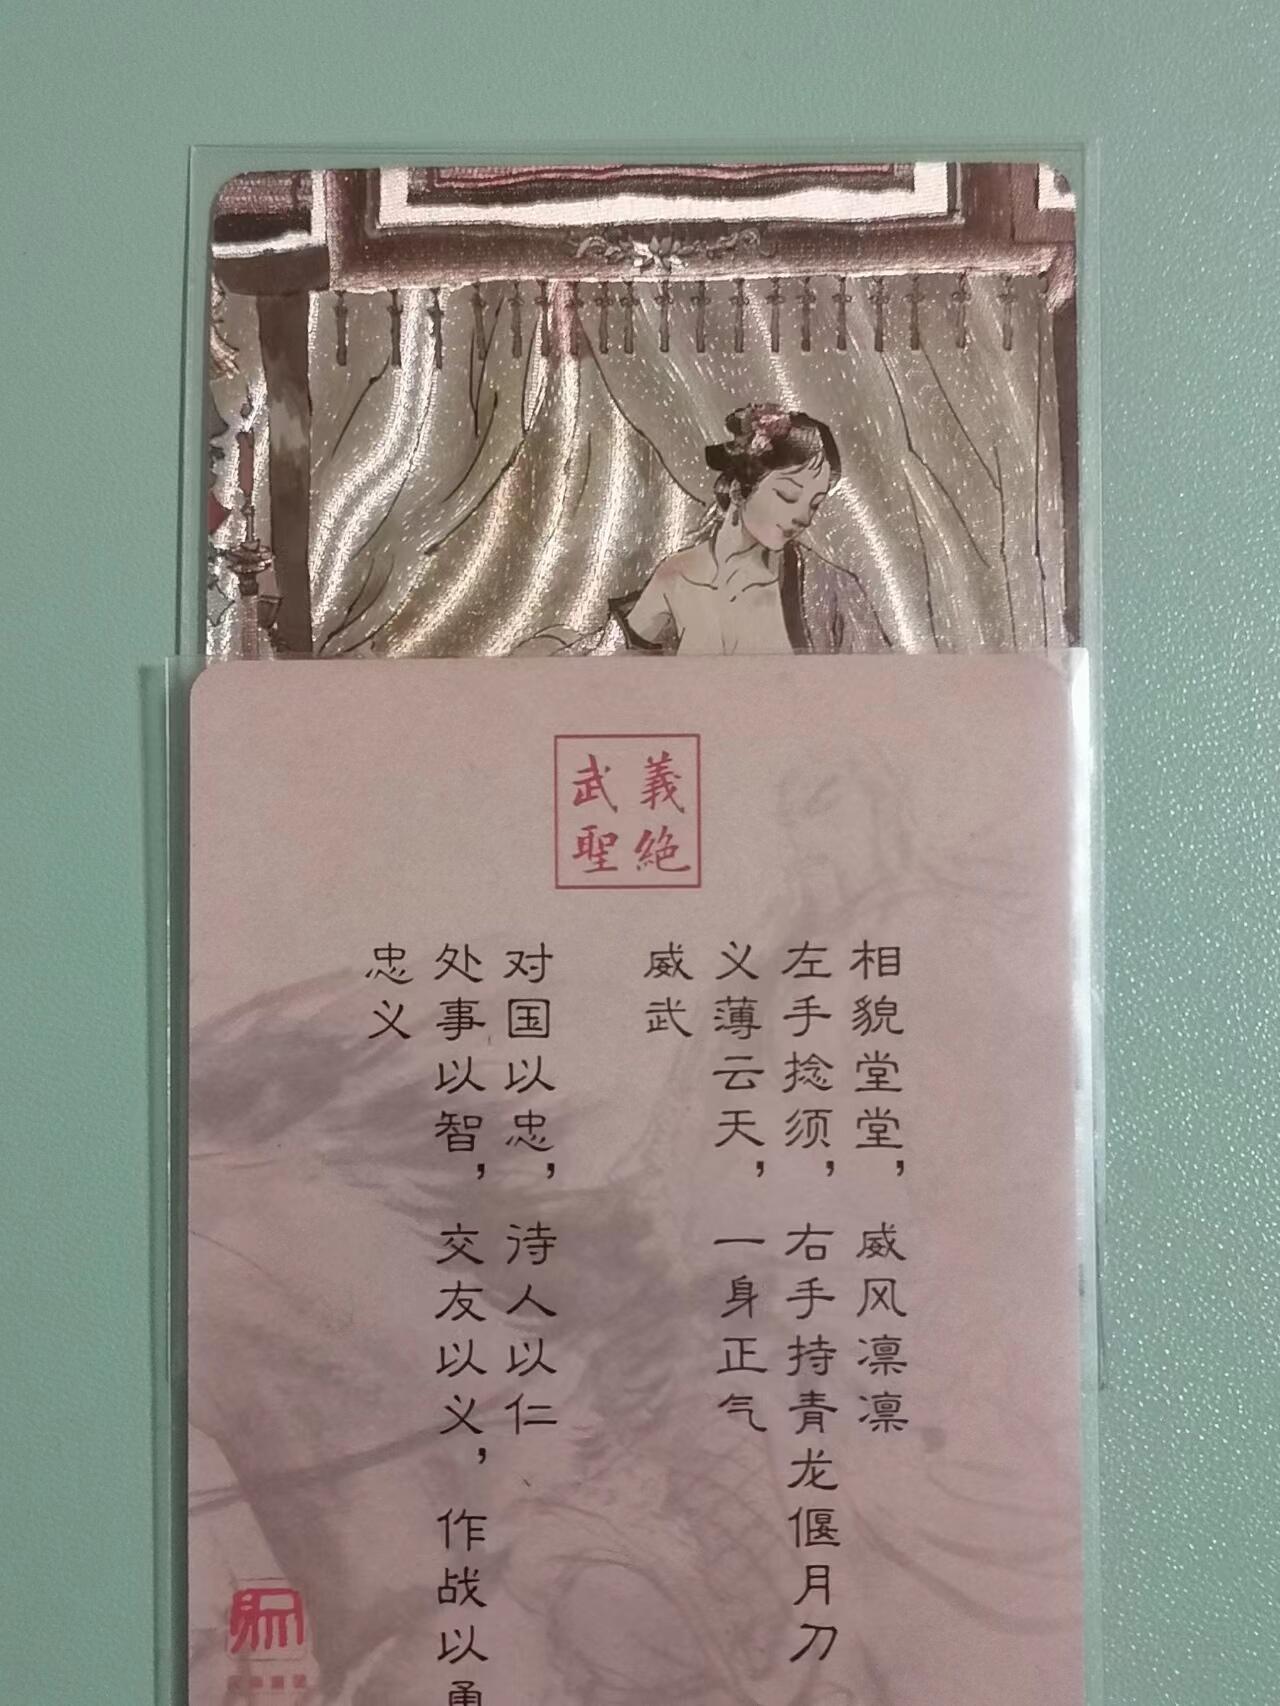 義絕
武聖
相貌堂堂，威风凛凛
左手捻须，右手持青龙偃月刀
义薄云天，一身正气
威武
对国以忠，待人以仁
处事以智，交友以义，作战以勇
忠义